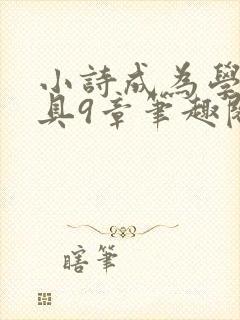 小詩成為學
具9章筆趣閣
瞎筆